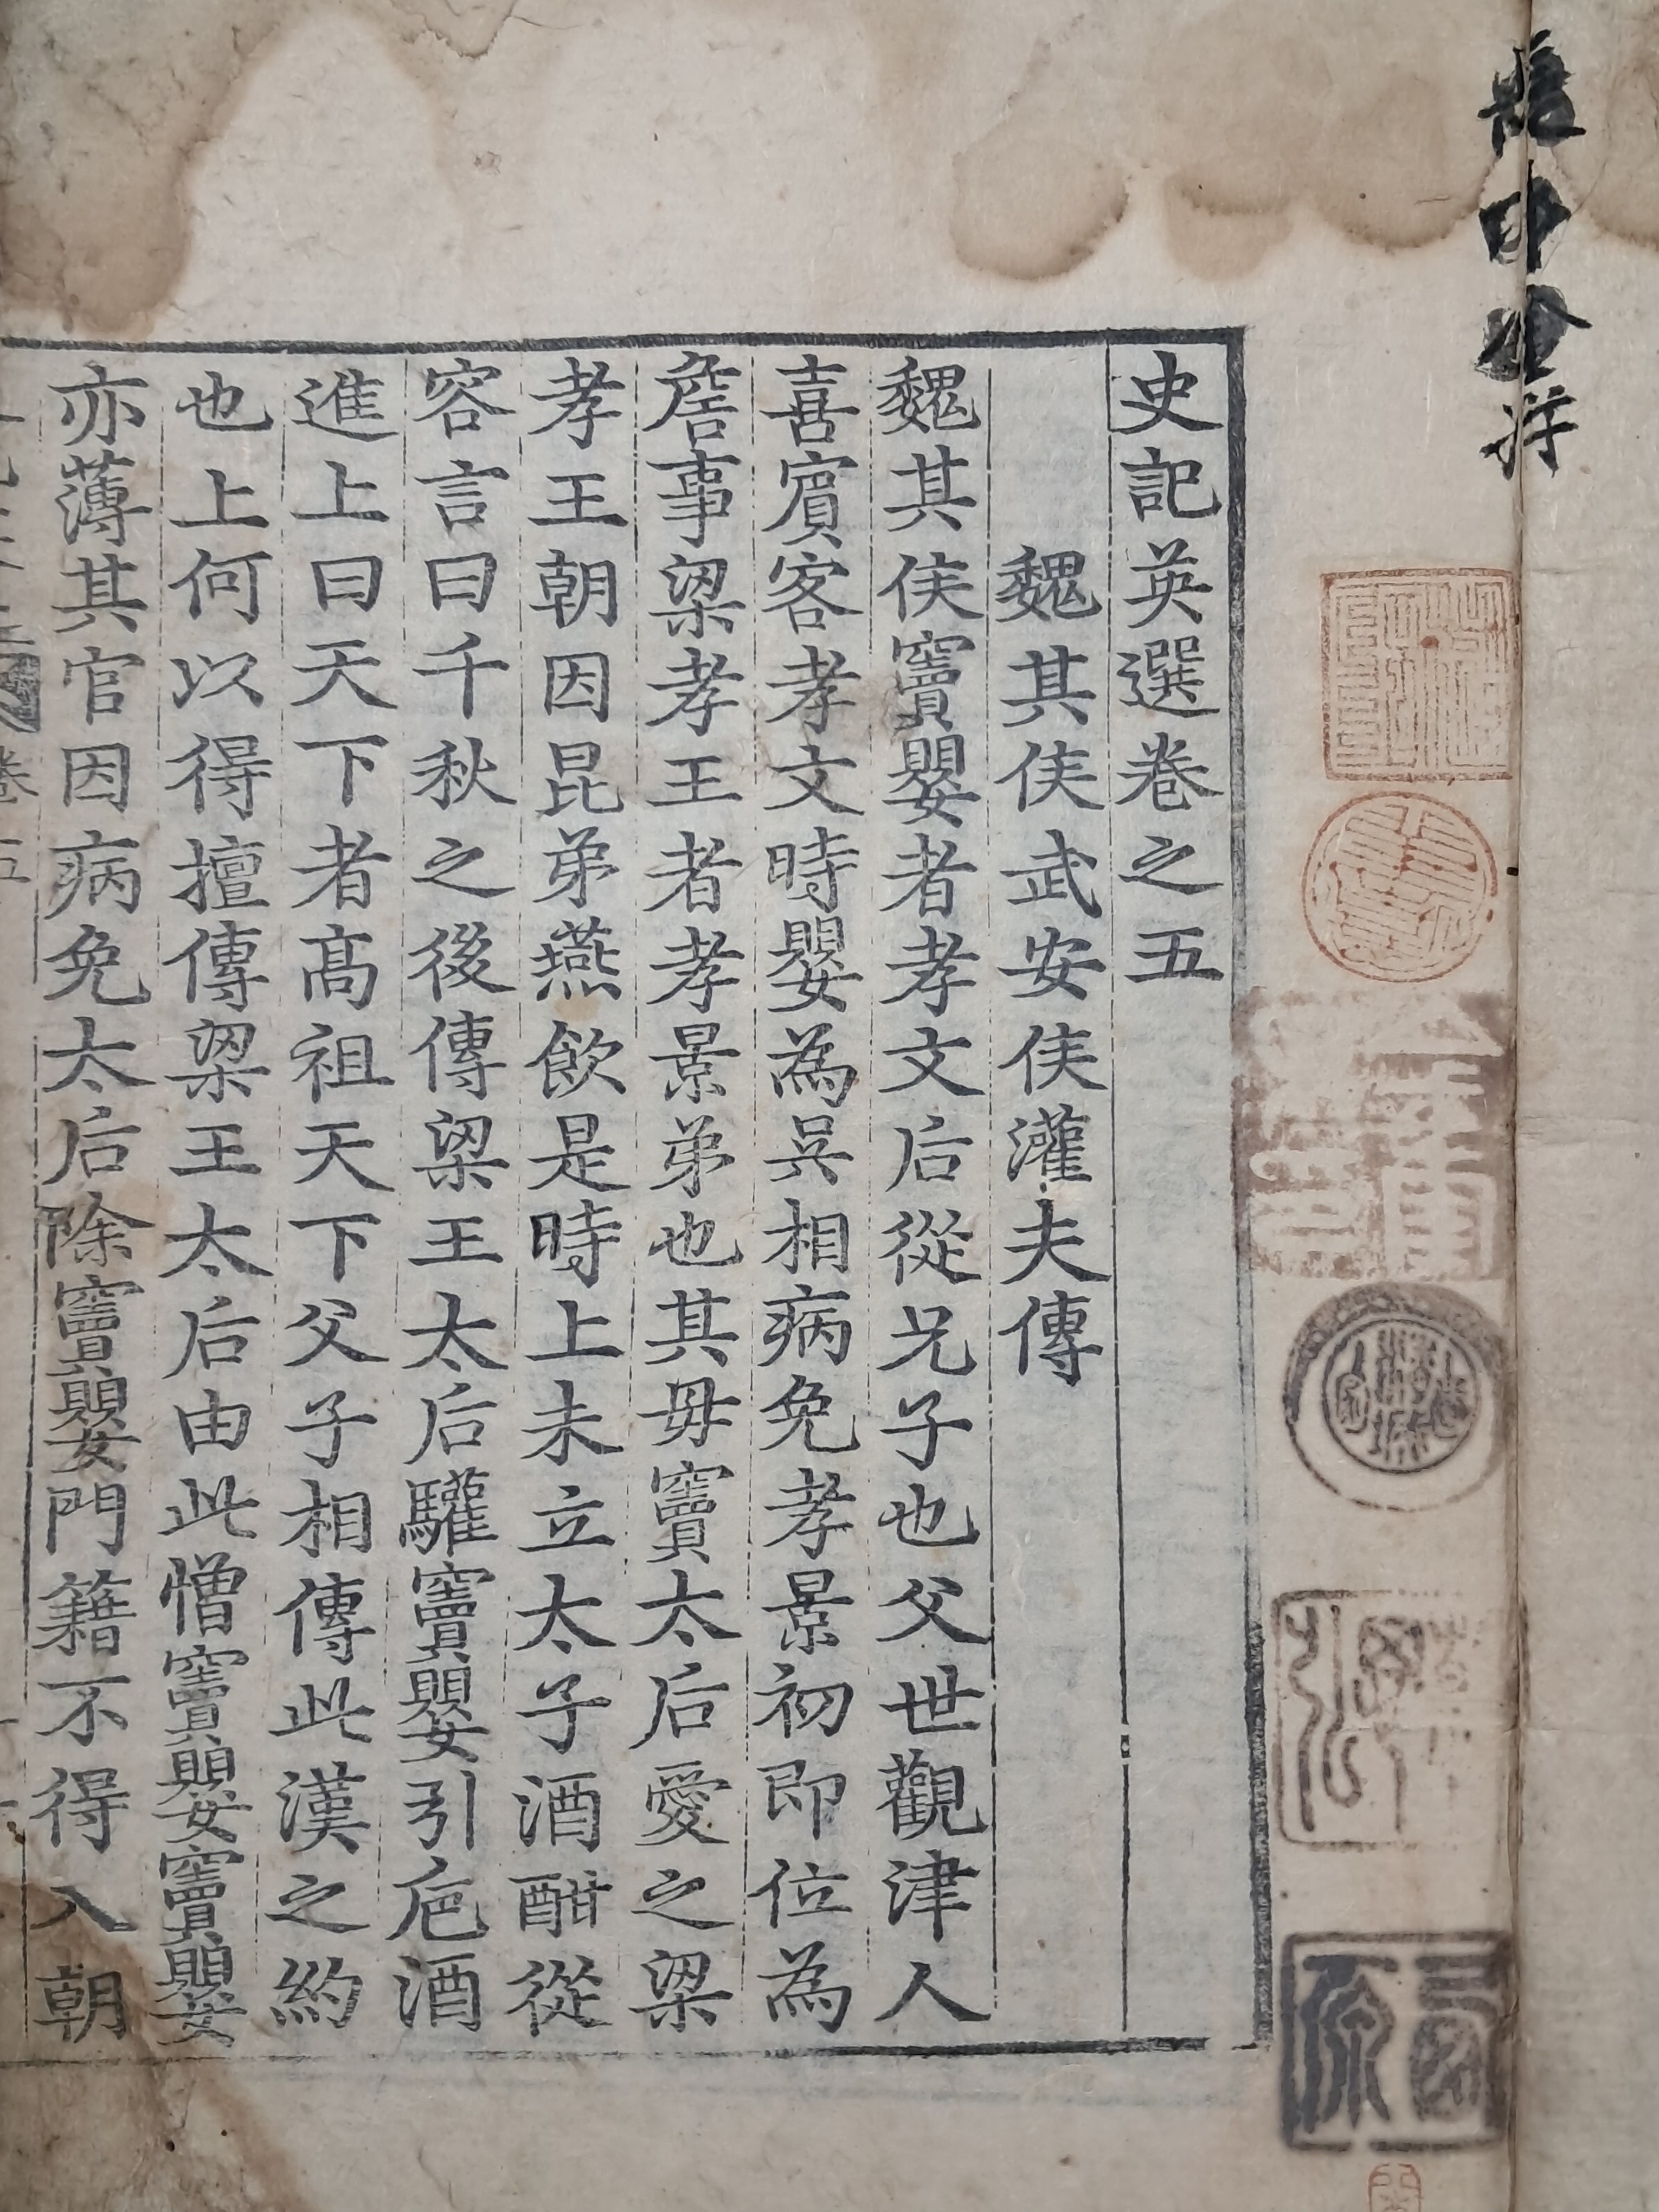 史記英選卷之五
魏其侯武安侯灌夫傳
魏其侯竇嬰者孝文后從兄子也父世觀津人
喜賓客孝文時嬰為吳相病免孝景初即位為
詹事梁孝王者孝景弟也其母竇太后愛之梁
孝王朝因昆弟燕飲是時上未立太子酒酣從
容言曰千秋之後傳梁王太后驩竇嬰引巵酒
進上曰天下者高祖天下父子相傳此漢之約
也上何以得擅傳梁王太后由此憎竇嬰竇嬰
亦薄其官因病免太后除竇嬰門籍不得入朝
卷五